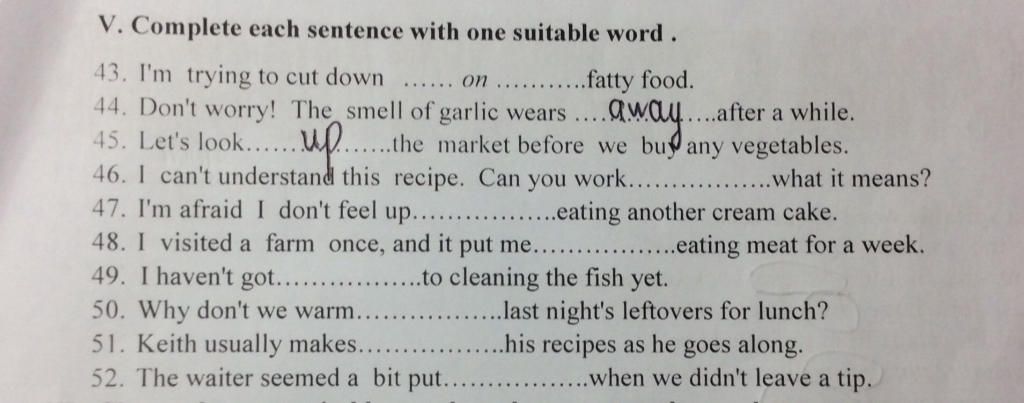 V. Complete each sentence with one suitable word .
43. I'm trying to cut down ...... on ...........fatty food.
44. Don't worry! The smell of garlic wears ....away....after a while.
45. Let's look......up......the market before we buy any vegetables.
46. I can't understand this recipe. Can you work.................what it means?
47. I'm afraid I don't feel up.................eating another cream cake.
48. I visited a farm once, and it put me.................eating meat for a week.
49. I haven't got.................to cleaning the fish yet.
50. Why don't we warm.................last night's leftovers for lunch?
51. Keith usually makes.................his recipes as he goes along.
52. The waiter seemed a bit put.................when we didn't leave a tip.